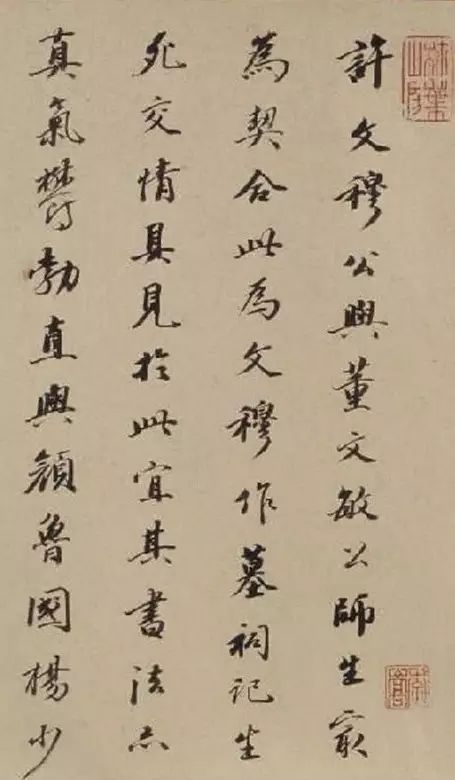 許文穆公與董文敏公師生㝡
為契合此為文穆作墓祠記生
死交情具見於此宜其書法亦
真氣鬱勃直與顏魯國楊少